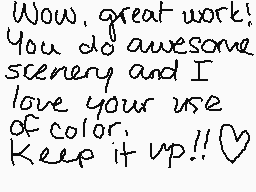 Wow, great work!
You do awesome
scenery and I
love your use
of color.
Keep it up!! ♡